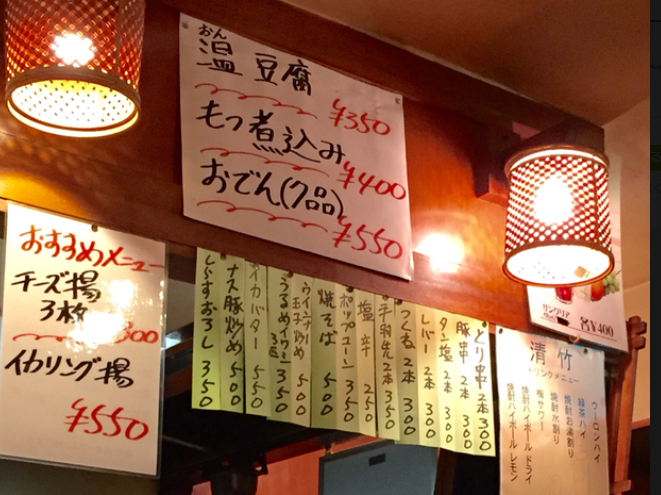 おん
温豆腐
¥350
もつ煮込み
¥400
おでん(7品)
¥550
おすすめメニュー
チーズ揚
3枚
300
イカリング揚
¥550
とり串 2本 300
豚串 2本 300
タン塩 2本 300
レバー 2本 300
つくね 2本 300
手羽先 2本 350
塩辛 250
ポップコーン 350
焼そば 500
ウインナー
玉子炒め 500
うるめイワシ
3匹 350
イカバター 550
ナス豚炒め 500
しらすおろし 350
サングリア
各¥400
清竹
ドリンクメニュー
ウーロンハイ
緑茶ハイ
焼酎お湯割り
焼酎水割り
梅サワー
焼酎ハイボールドライ
焼酎ハイボールレモン